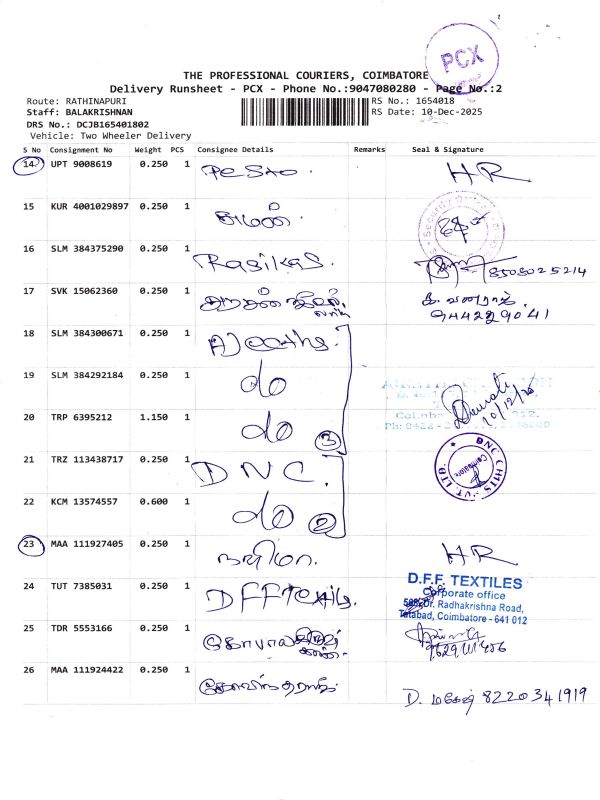 PCX
THE PROFESSIONAL COURIERS, COIMBATORE
Delivery Runsheet - PCX - Phone No.:9047080280 - Page No.:2
Route: RATHINAPURI
RS No.: 1654018
Staff: BALAKRISHNAN
RS Date: 10-Dec-2025
DRS No.: DCJB165401802
Vehicle: Two Wheeler Delivery
S No Consignment No Weight PCS Consignee Details Remarks Seal & Signature
14 UPT 9008619 0.250 1 Pesto. HR
15 KUR 4001029897 0.250 1
Security
16 SLM 384375290 0.250 1 Rasikas. 8508025214
17 SVK 15062360 0.250 1
944229041
18 SLM 384300671 0.250 1
19 SLM 384292184 0.250 1 do
20 TRP 6395212 1.150 1 do 3
10/12/25
21 TRZ 113438717 0.250 1 DNC.
DNC CHITS PVT LTD. Coimbatore
22 KCM 13574557 0.600 1 do 2
23 MAA 111927405 0.250 1 HR
24 TUT 7385031 0.250 1 DFF
D.F.F. TEXTILES
Corporate office
Dr. Radhakrishna Road,
Tatabad, Coimbatore - 641 012
25 TDR 5553166 0.250 1
26 MAA 111924422 0.250 1 கோவிந்தராஜ்
D. மகேஷ் 8220341919